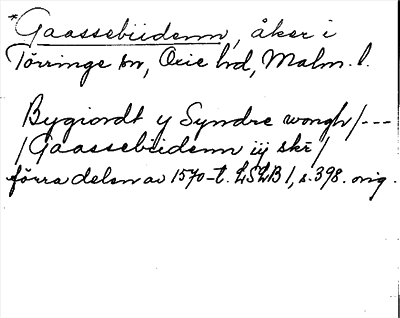 *Gaassebiidenn, åker i
Törringe sn, Oxie hd, Malm. l.
Bygiordt y Syndre wongh /---
/ Gaassebiidenn iij skr /
förra delen av 1570-t. LSLB 1, s. 398. orig.